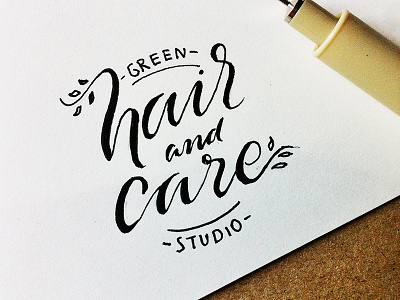 -GREEN-
hair
and
care
-STUDIO-